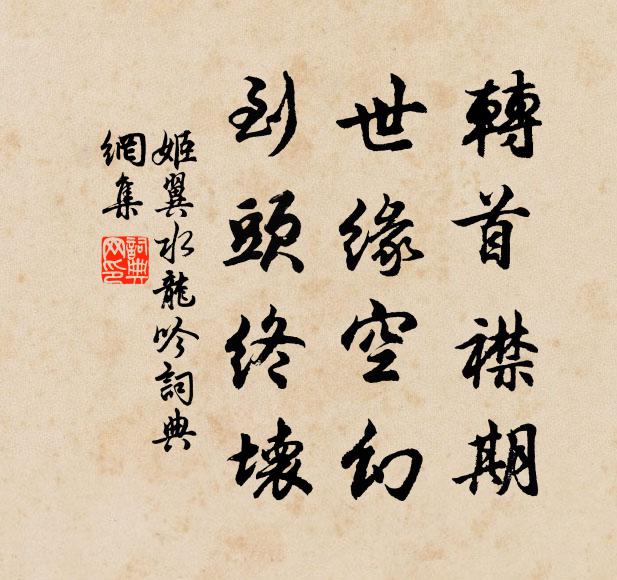 轉首襟期
世緣空幻
到頭終壞
姬翼水龍吟詞典
網集
詞典
网印